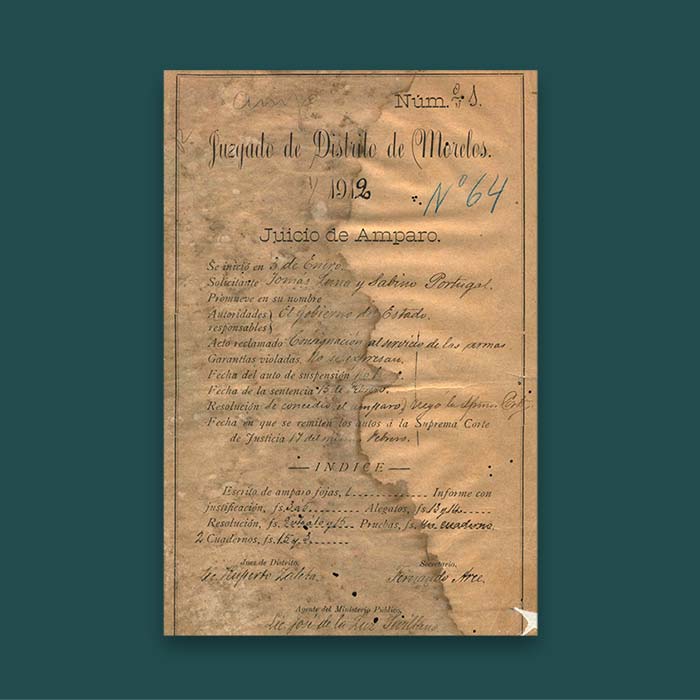 Núm. 1.
Juzgado de Distrito de Morelos.
1912
Nº 64
Juicio de Amparo.
Se inició en 5 de Enero.
Solicitante Tomás Luna y Sabino Portugal.
Promueve en su nombre
Autoridades responsables} El Gobierno de Estado.
Acto reclamado Consignación al servicio de las armas
Garantías violadas. No se expresan.
Fecha del auto de suspensión
Fecha de la sentencia 13 de Enero.
Resolución se concedió el amparo
Fecha en que se remiten los autos á la Suprema Corte
de Justicia 17 del Febrero.
INDICE
Escrito de amparo fojas, 1 Informe con
justificación, fs. Alegatos, fs. 13 y 14
Resolución, fs. y 15 Pruebas, fs. cuaderno
2 Cuadernos, fs. 15 y
Juez de Distrito, Secretario,
Lic. Ruperto Zaleta. Fernando Arce.
Agente del Ministerio Público,
Lic. José de la Luz Sevillano